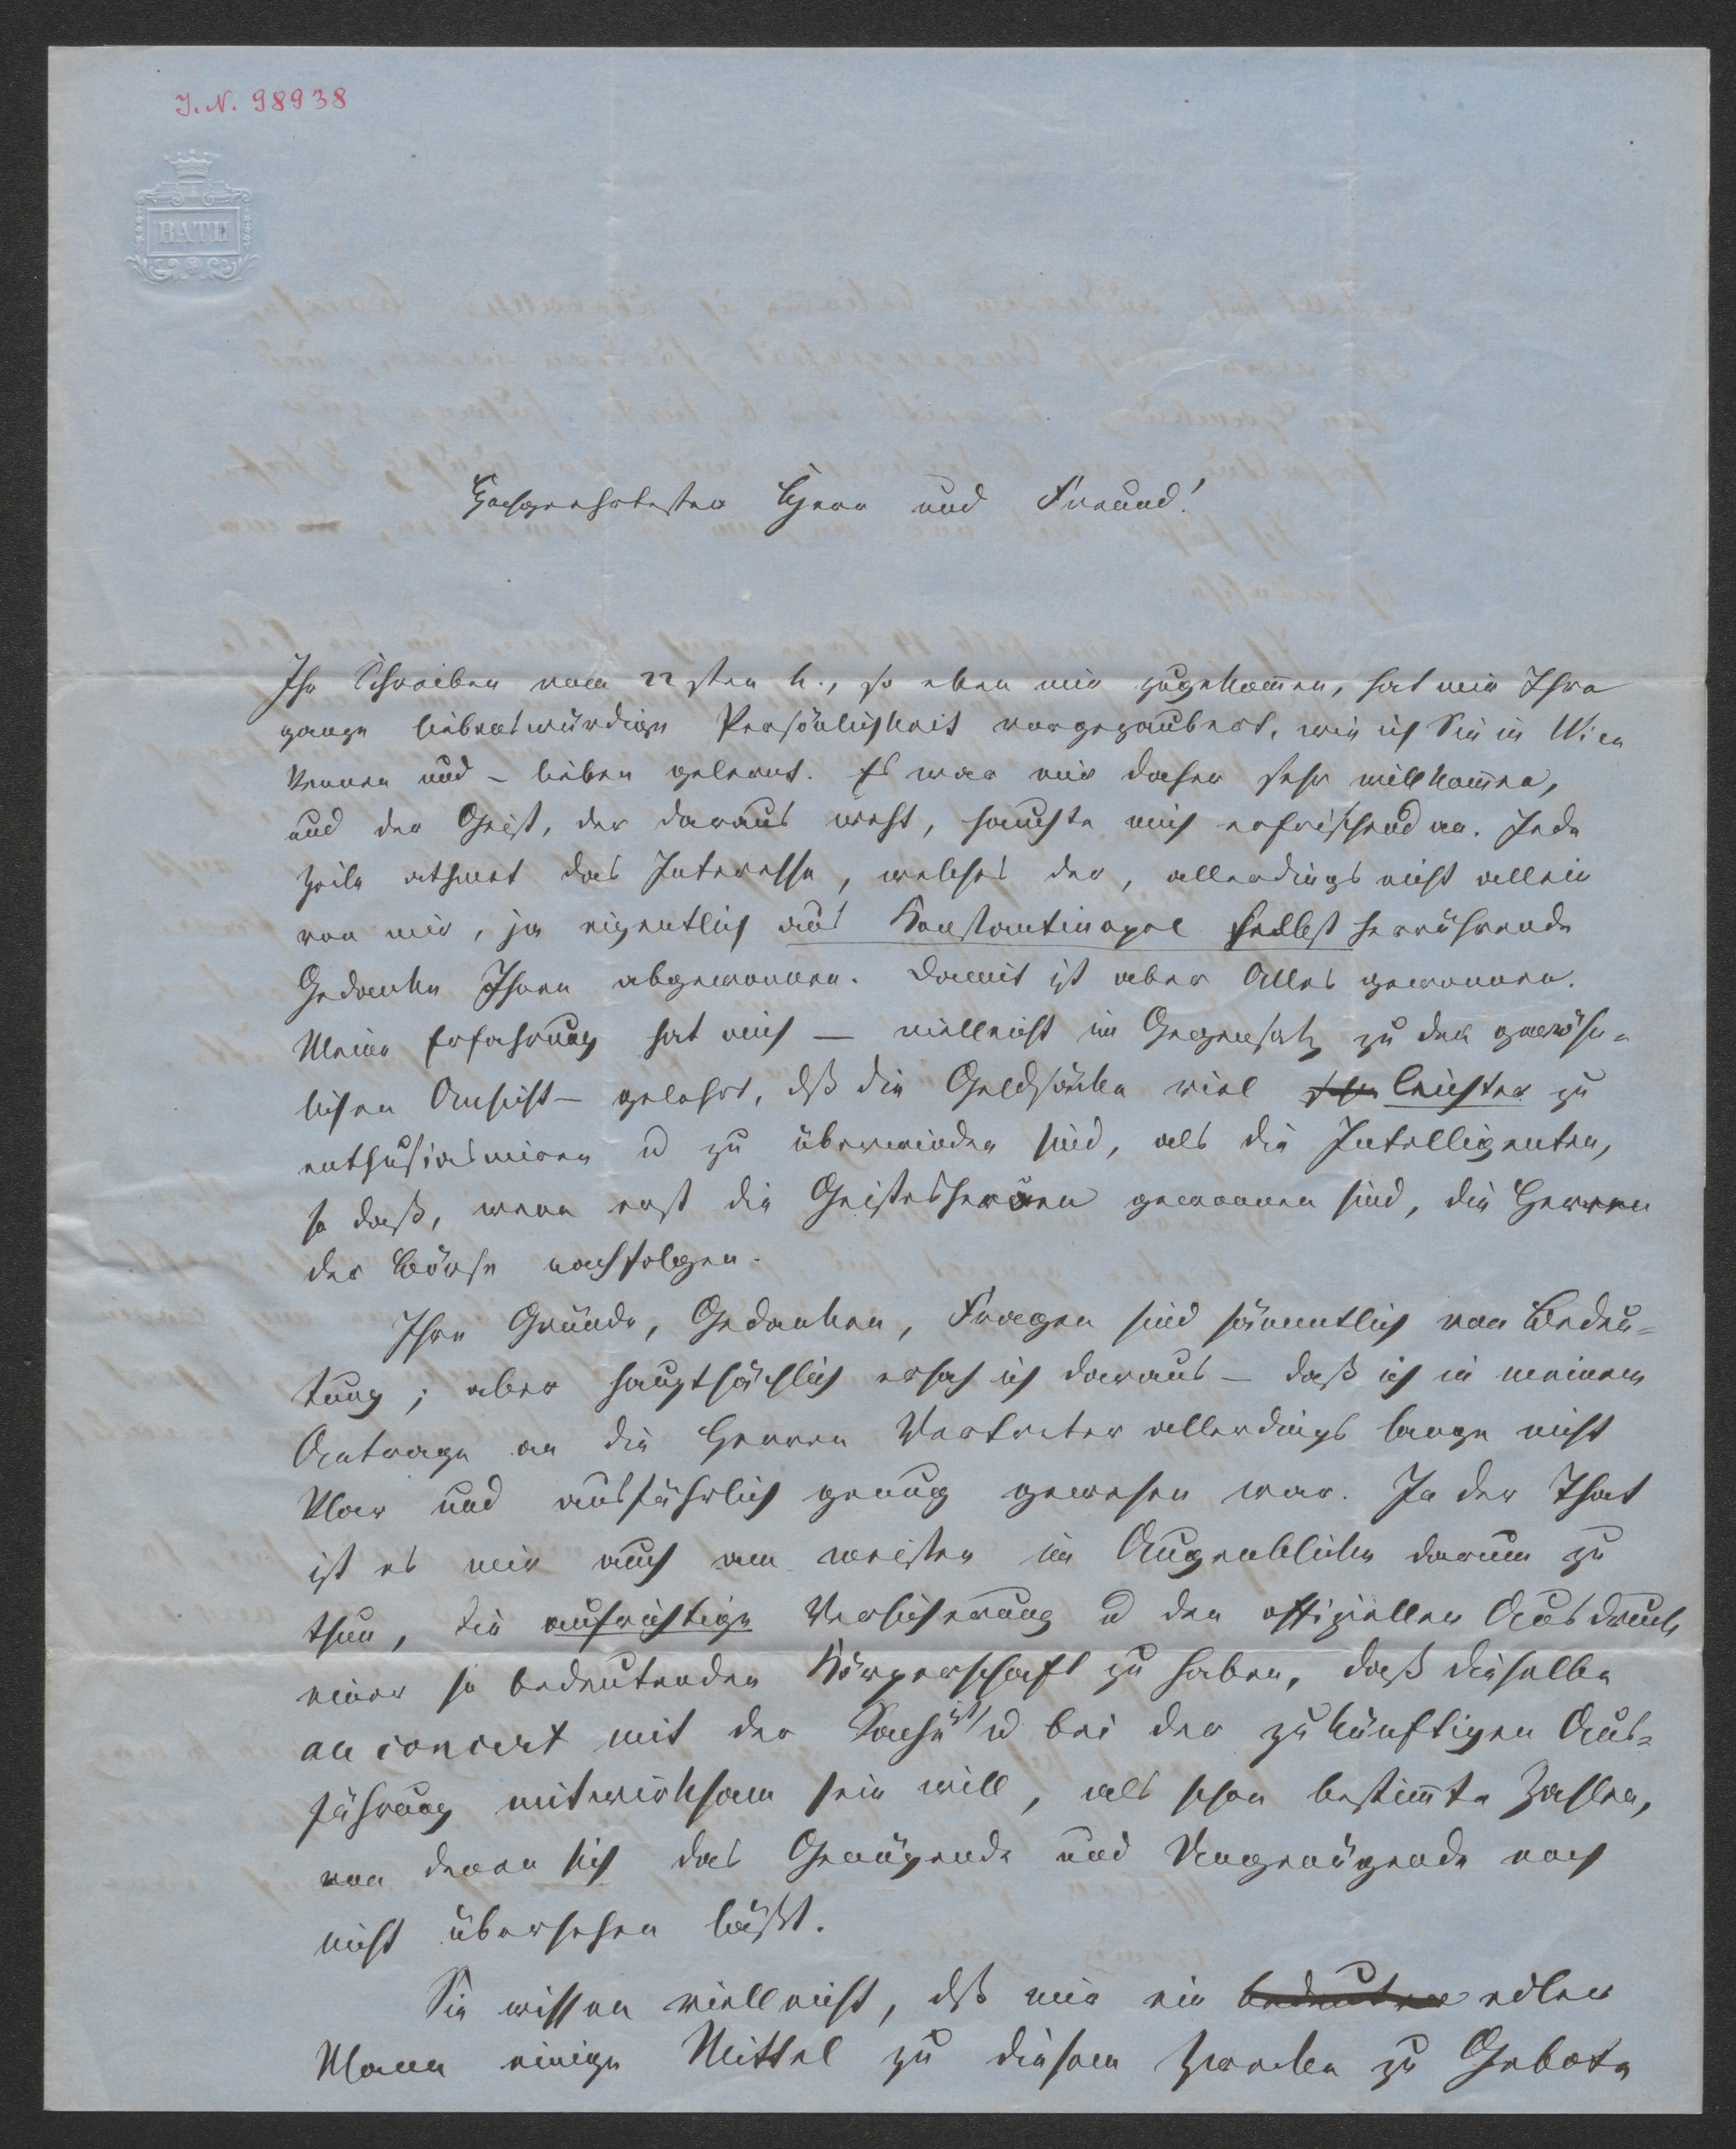 J. N. 98938
BATH
Hochgeehrtester Herr und Freund!
Ihr Schreiben vom 22sten h., so eben mir zugekom̄en, hat mir Ihre
ganze liebenswürdige Persönlichkeit vorgezaubert, wie ich Sie in Wien
kennen und – lieben gelernt. Es war mir daher sehr willkom̄en,
und der Geist, der daraus weht, hauchte mich erfrischend an. Jede
Zeile athmet das Interesse, welches der, allerdings nicht allein
von mir, ja eigentlich aus Konstantinopel selbst herrührende
Gedanke Ihnen abgewonnen. Damit ist aber Alles gewonnen.
Meine Erfahrung hat mich — vielleicht im Gegensatz zu der gewöhn-
lichen Ansicht – gelehrt, dß die Geldsäcke viel leichter zu
enthusiasmiren u zu überwinden sind, als die Intelligenten,
so daß, wenn erst die Geistesheroen gewonnen sind, die Herren
der Börse nachfolgen.
Ihre Gründe, Gedanken, Fragen sind sämmtlich von Bedeu-
tung; aber hauptsächlich ersah ich daraus – daß ich in meinem
Antrage an die Herren Vertreter allerdings lange nicht
klar und ausführlich genug gewesen war. In der That
ist es mir auch am meisten im Augenblicke darum zu
thun, die aufrichtige Versicherung u den offiziellen Ausdruck
einer so bedeutenden Körperschaft zu haben, daß dieselbe
en concert mit der Sache ist u bei der zukünftigen Aus-
führung mitwirksam sein will, als schon bestim̄te Zahlen,
von denen sich das Genügende und Ungenügende noch
nicht übersehen läßt.
Sie wissen vielleicht, dß mir ein bedeuten edler
Mann einige Mittel zu diesem Zwecke zu Gebote